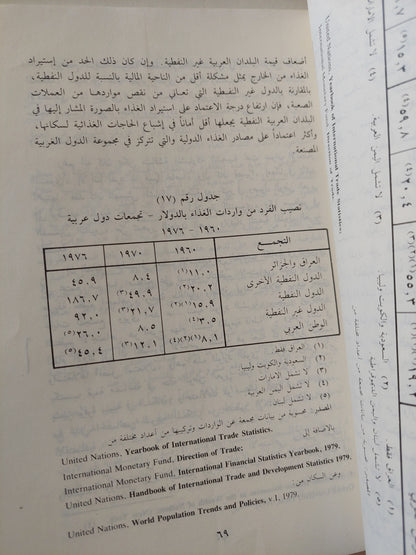 أضعاف قيمة البلدان العربية غير النفطية. وإن كان ذلك الحد من إستيراد
الغذاء من الخارج يمثل مشكلة أقل من الناحية المالية بالنسبة للدول النفطية،
بالمقارنة بالدول غير النفطية التي تعاني من نقص مواردها من العملات
الصعبة، فإن ارتفاع درجة الاعتماد على استيراد الغذاء بالصورة المشار إليها في
البلدان العربية النفطية يجعلها أقل أماناً في إشباع الحاجات الغذائية لسكانها،
وأكثر اعتماداً على مصادر الغذاء الدولية والتي تتركز في مجموعة الدول الغربية
المصنعة.
جدول رقم (١٧)
نصيب الفرد من واردات الغذاء بالدولار - تجمعات دول عربية
١٩٦٠ - ١٩٧٦
التجمع ١٩٦٠ ١٩٧٠ ١٩٧٦
العراق والجزائر ١١.٠(١) ٨.٤ ٤٥.٩
الدول النفطية الأخرى ٢٠.٢(٢) ٤٩.٩(٣) ١٨٦.٧
الدول النفطية ١٥.٩(١)(٢) ٢١.٧(٣) ٩٢.٠
الدول غير النفطية ٣.٥(٤) ٨.٥ ٢٦.٠(٥)
الوطن العربي ٨.١(١)(٢)(٤) ١٢.١(٣) ٤٥.٤(٥)
(١) العراق فقط.
(٢) السعودية والكويت وليبيا
(٣) لا تشمل الامارات
(٤) لا تشمل اليمن العربية
(٥) لا تشمل لبنان.
المصدر: محسوبة من بيانات مجمعة عن الواردات وتركيبها من أعداد مختلفة من
United Nations, Yearbook of International Trade Statistics.
بالاضافة إلى
International Monetary Fund, Direction of Trade;
International Monetary Fund, International Financial Statistics Yearbook, 1979.
United Nations, Handbook of International Trade and Development Statistics 1979.
وعن السكان من:
United Nations, World Population Trends and Policies, v.1, 1979.
٦٩
United Nations, Yearbook of International Trade Statistics;
(٣) لا تشمل اليمن العربية
(٢) السعودية والكويت وليبيا
(١) العراق فقط